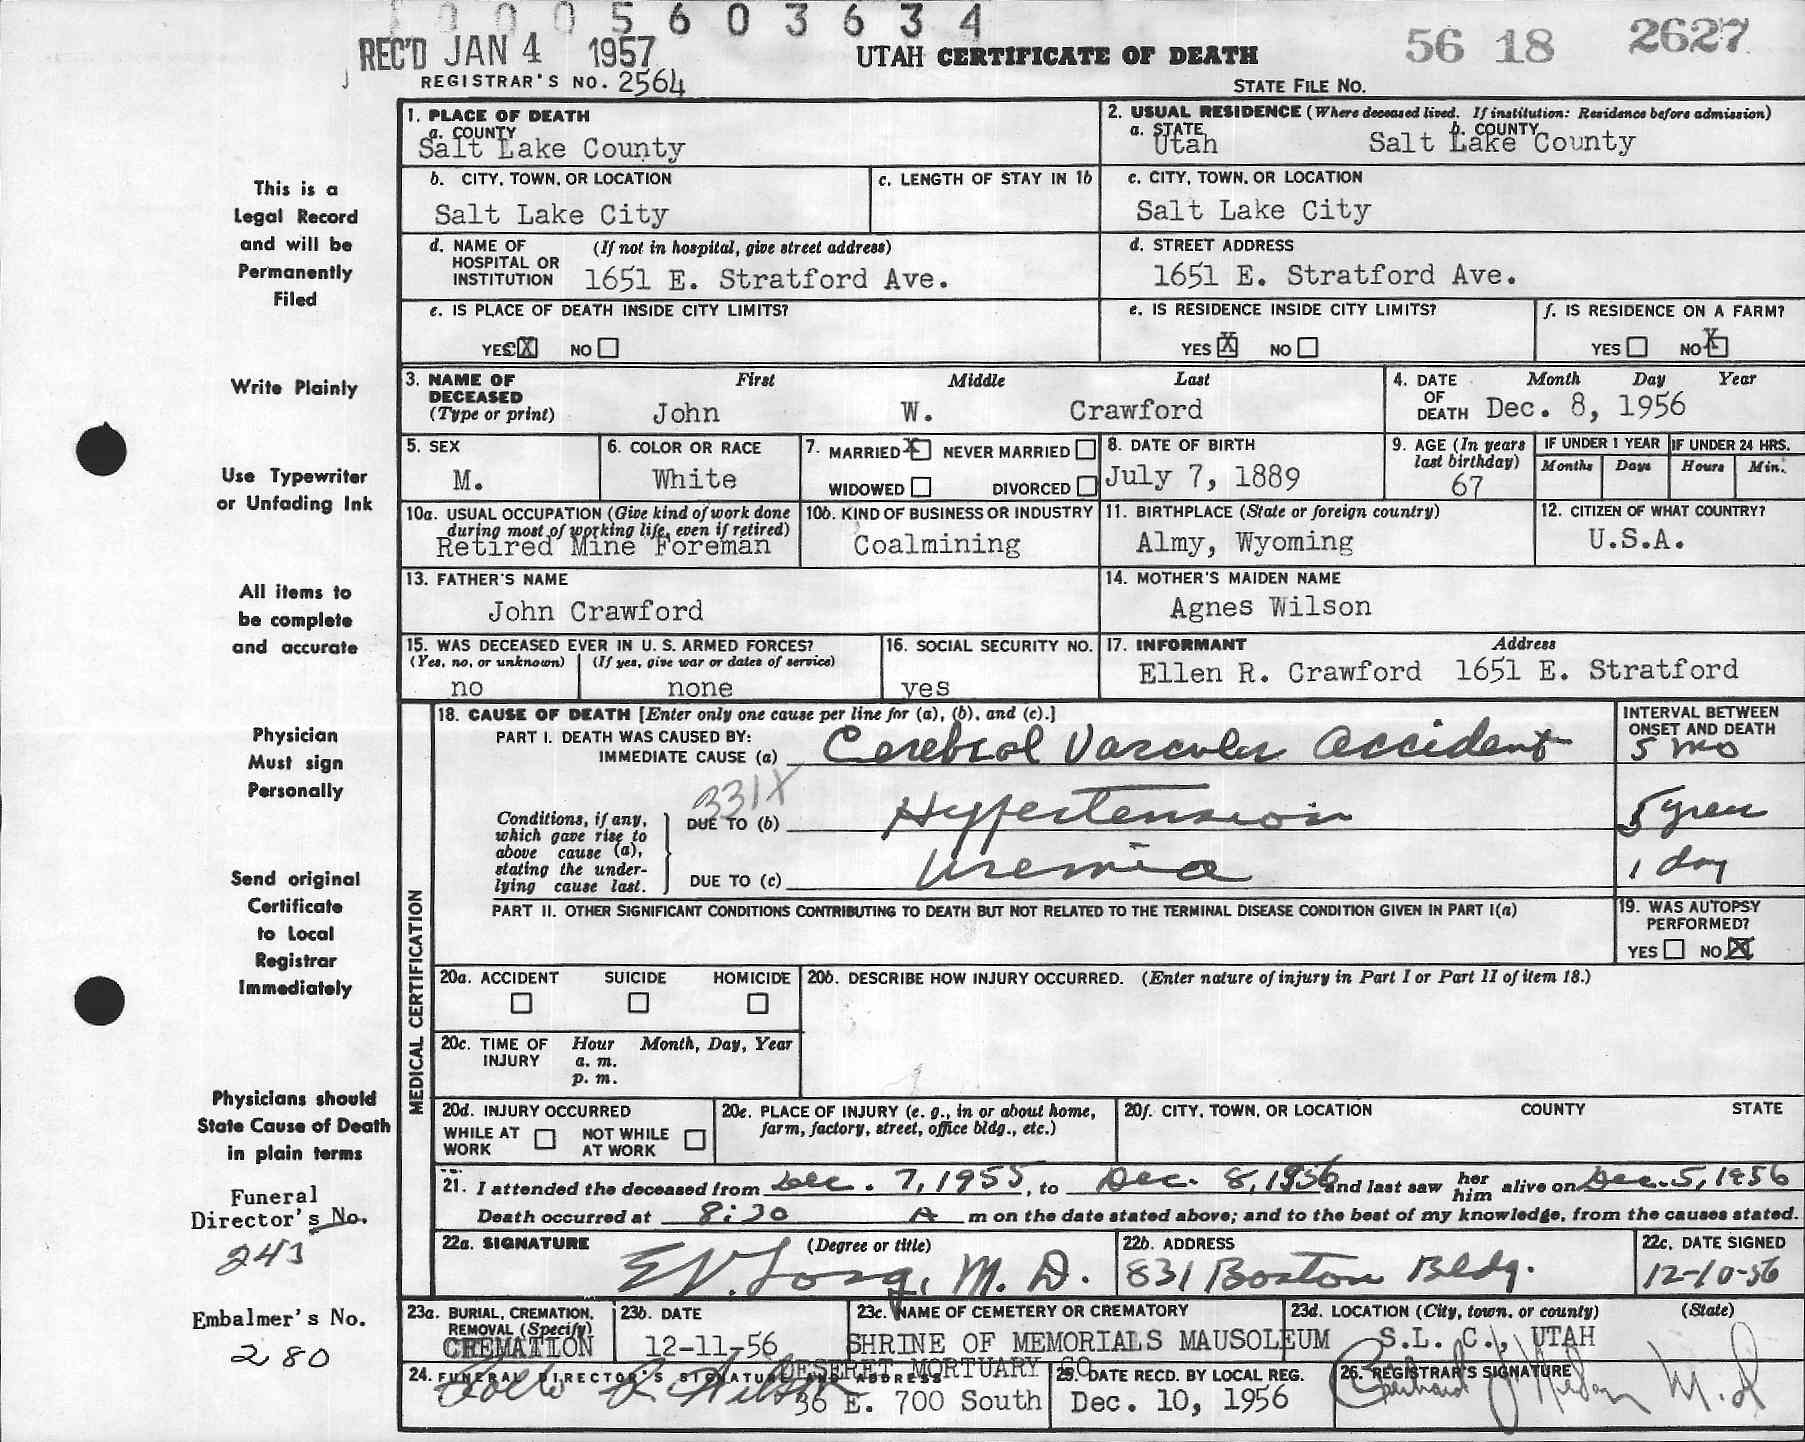 0005603634
REC'D JAN 4 1957
UTAH CERTIFICATE OF DEATH
56 18 2627
REGISTRAR'S NO. 2564
STATE FILE NO.
This is a
Legal Record
and will be
Permanently
Filed
Write Plainly
Use Typewriter
or Unfading Ink
All items to
be complete
and accurate
Physician
Must sign
Personally
Send original
Certificate
to Local
Registrar
Immediately
Physicians should
State Cause of Death
in plain terms
Funeral
Director's No.
243
Embalmer's No.
280
1. PLACE OF DEATH
a. COUNTY
Salt Lake County
2. USUAL RESIDENCE (Where deceased lived. If institution: Residence before admission)
a. STATE
Utah
b. COUNTY
Salt Lake County
b. CITY, TOWN, OR LOCATION
Salt Lake City
c. LENGTH OF STAY IN 1b
c. CITY, TOWN, OR LOCATION
Salt Lake City
d. NAME OF HOSPITAL OR INSTITUTION (If not in hospital, give street address)
1651 E. Stratford Ave.
d. STREET ADDRESS
1651 E. Stratford Ave.
e. IS PLACE OF DEATH INSIDE CITY LIMITS?
YES X NO
e. IS RESIDENCE INSIDE CITY LIMITS?
YES X NO
f. IS RESIDENCE ON A FARM?
YES NO X
3. NAME OF DECEASED (Type or print)
First Middle Last
John W. Crawford
4. DATE OF DEATH Month Day Year
Dec. 8, 1956
5. SEX
M.
6. COLOR OR RACE
White
7. MARRIED X NEVER MARRIED
WIDOWED DIVORCED
8. DATE OF BIRTH
July 7, 1889
9. AGE (In years last birthday)
67
IF UNDER 1 YEAR
Months Days
IF UNDER 24 HRS.
Hours Min.
10a. USUAL OCCUPATION (Give kind of work done during most of working life, even if retired)
Retired Mine Foreman
10b. KIND OF BUSINESS OR INDUSTRY
Coalmining
11. BIRTHPLACE (State or foreign country)
Almy, Wyoming
12. CITIZEN OF WHAT COUNTRY?
U.S.A.
13. FATHER'S NAME
John Crawford
14. MOTHER'S MAIDEN NAME
Agnes Wilson
15. WAS DECEASED EVER IN U. S. ARMED FORCES?
(Yes, no, or unknown) (If yes, give war or dates of service)
no none
16. SOCIAL SECURITY NO.
yes
17. INFORMANT Address
Ellen R. Crawford 1651 E. Stratford
MEDICAL CERTIFICATION
18. CAUSE OF DEATH [Enter only one cause per line for (a), (b), and (c).]
PART I. DEATH WAS CAUSED BY:
IMMEDIATE CAUSE (a) Cerebral Vascular Accident
INTERVAL BETWEEN ONSET AND DEATH
5 mo
331X
Conditions, if any, which gave rise to above cause (a), stating the underlying cause last.
DUE TO (b) Hypertension
5 years
DUE TO (c) Uremia
1 day
PART II. OTHER SIGNIFICANT CONDITIONS CONTRIBUTING TO DEATH BUT NOT RELATED TO THE TERMINAL DISEASE CONDITION GIVEN IN PART I(a)
19. WAS AUTOPSY PERFORMED?
YES NO X
20a. ACCIDENT SUICIDE HOMICIDE
20b. DESCRIBE HOW INJURY OCCURRED. (Enter nature of injury in Part I or Part II of item 18.)
20c. TIME OF INJURY Hour Month, Day, Year
a. m.
p. m.
20d. INJURY OCCURRED
WHILE AT WORK NOT WHILE AT WORK
20e. PLACE OF INJURY (e. g., in or about home, farm, factory, street, office bldg., etc.)
20f. CITY, TOWN, OR LOCATION COUNTY STATE
21. I attended the deceased from Dec. 7, 1955, to Dec. 8, 1956 and last saw her him alive on Dec. 5, 1956
Death occurred at 8:30 A m on the date stated above; and to the best of my knowledge, from the causes stated.
22a. SIGNATURE (Degree or title)
E.V. Long, M. D.
22b. ADDRESS
831 Boston Bldg.
22c. DATE SIGNED
12-10-56
23a. BURIAL, CREMATION, REMOVAL (Specify)
CREMATION
23b. DATE
12-11-56
23c. NAME OF CEMETERY OR CREMATORY
SHRINE OF MEMORIALS MAUSOLEUM
23d. LOCATION (City, town, or county) (State)
S.L. C., UTAH
24. FUNERAL DIRECTOR'S SIGNATURE AND ADDRESS
DESERET MORTUARY CO
36 E. 700 South
25. DATE RECD. BY LOCAL REG.
Dec. 10, 1956
26. REGISTRAR'S SIGNATURE
M.D